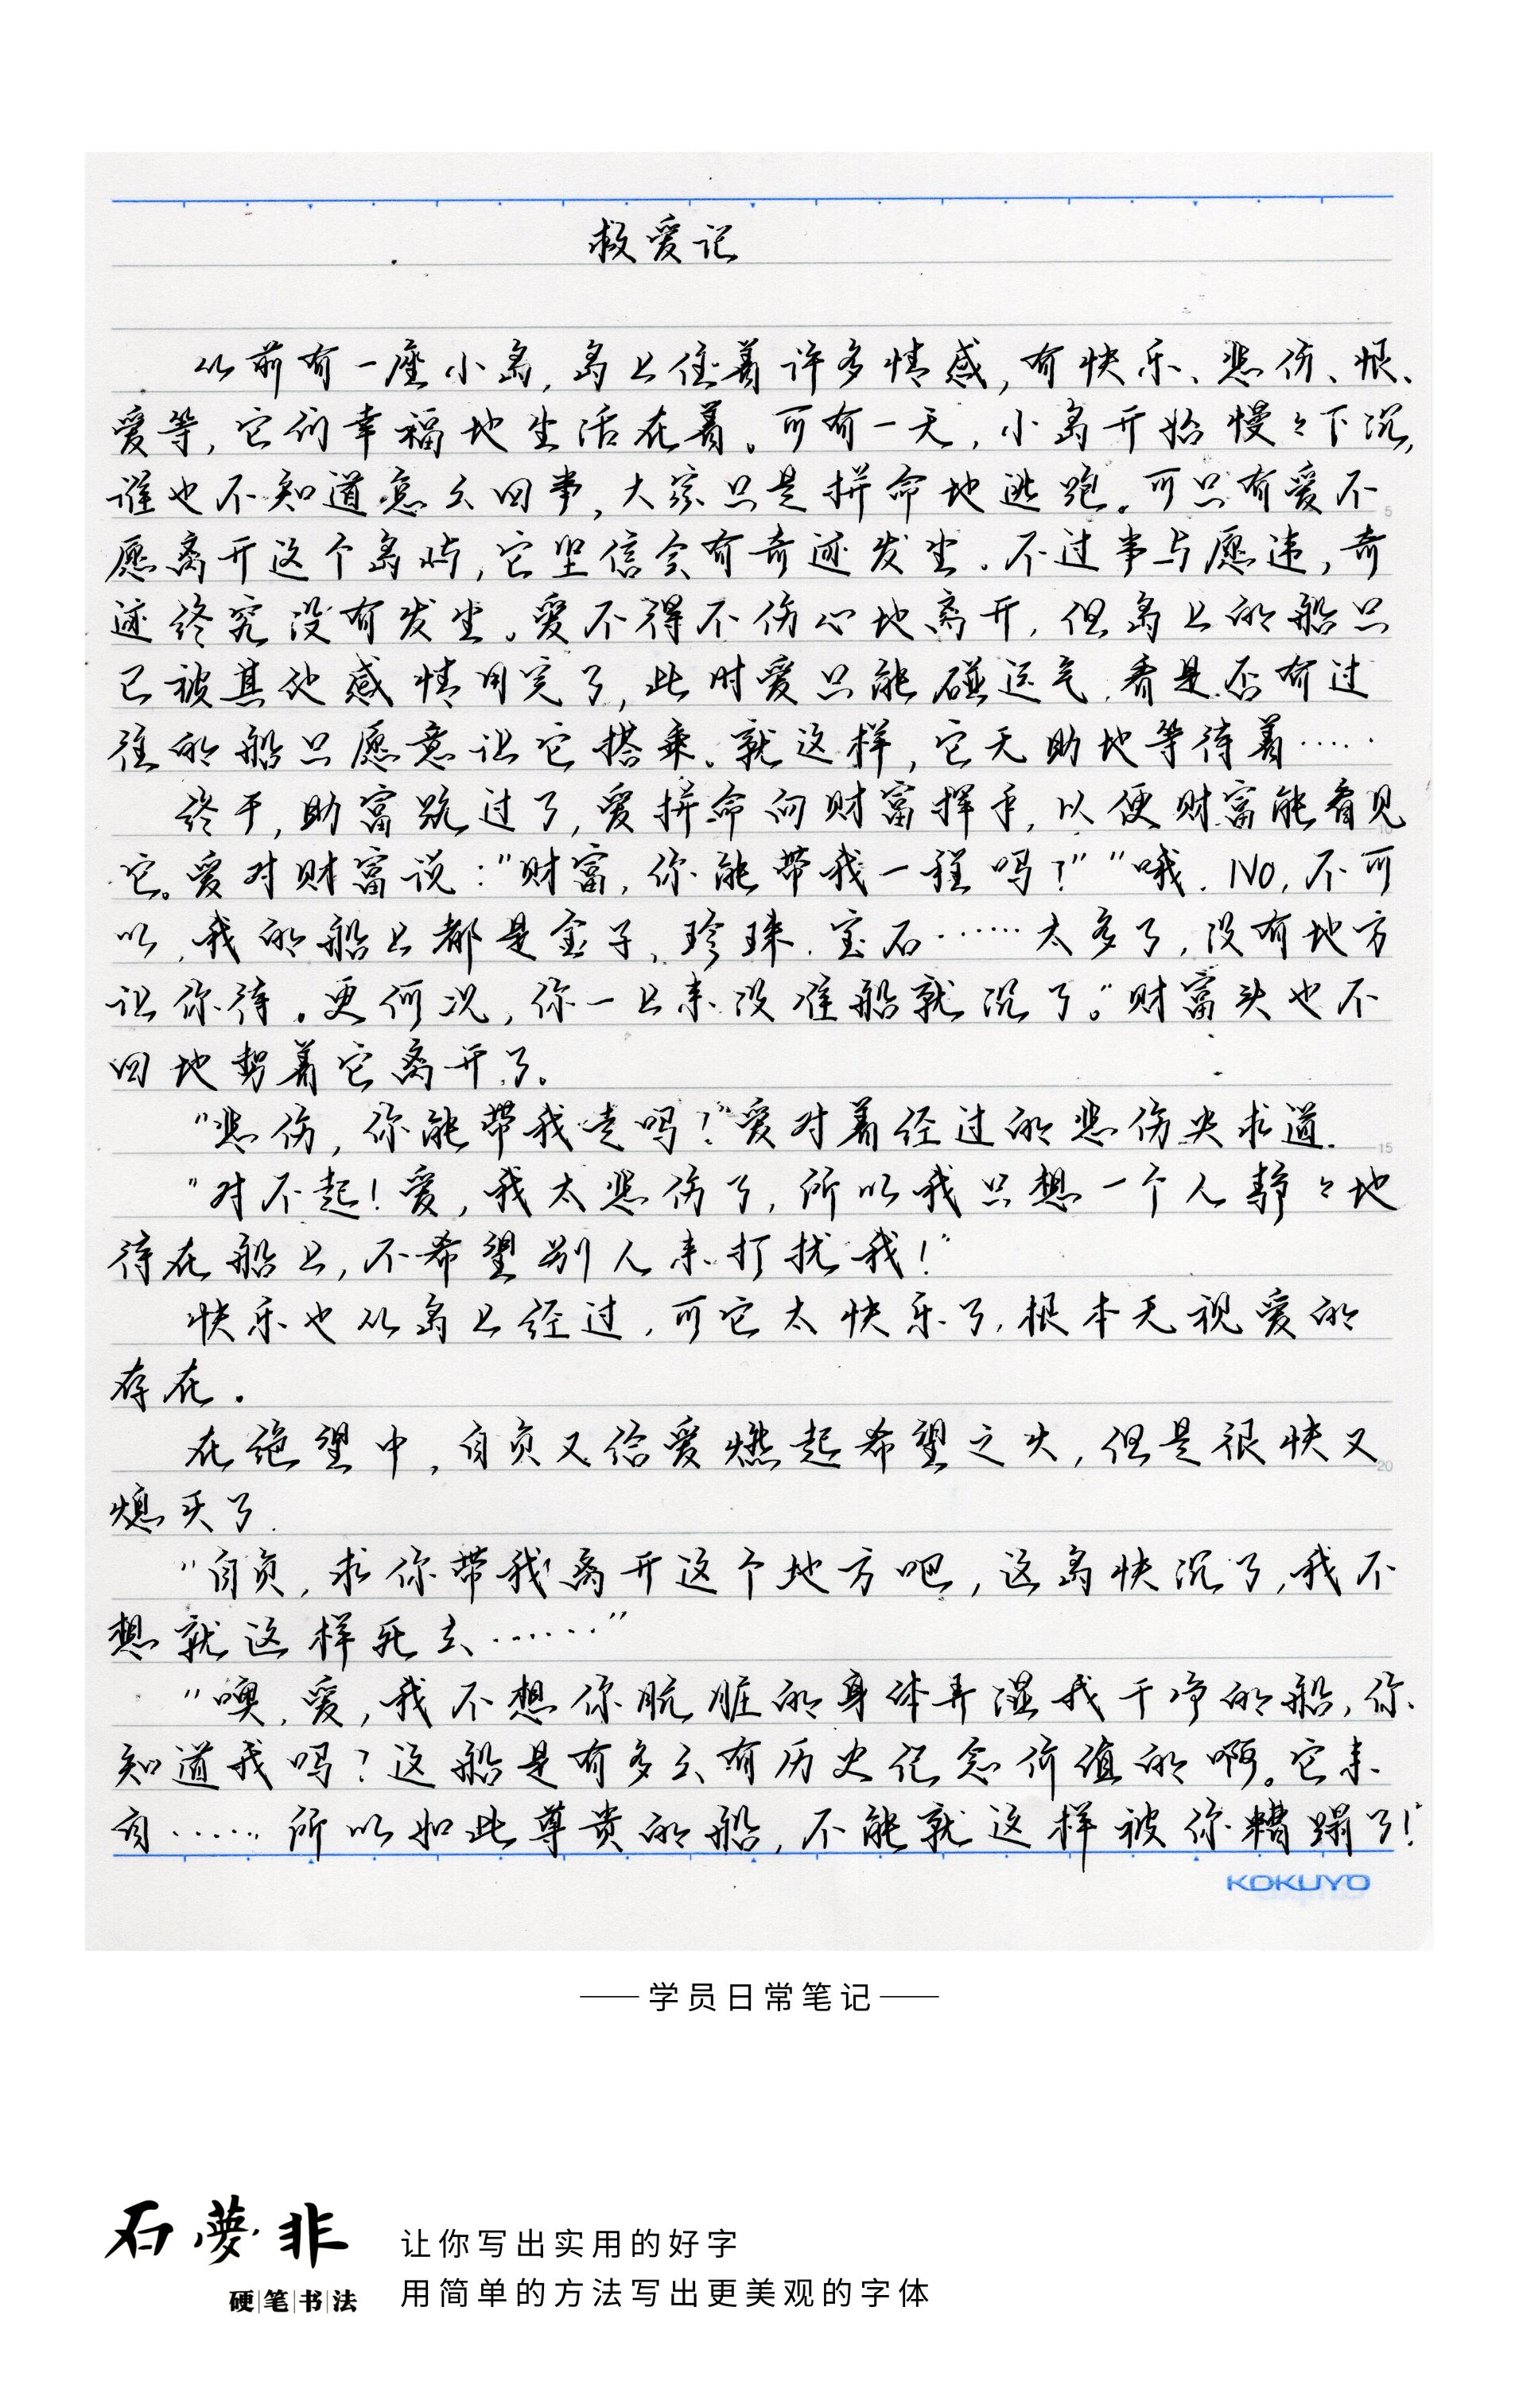 救爱记
从前有一座小岛,岛上住着许多情感,有快乐、悲伤、恨、
爱等,它们幸福地生活在着。可有一天,小岛开始慢々下沉,
谁也不知道怎么回事,大家只是拼命地逃跑。可只有爱不
愿离开这个岛屿,它坚信会有奇迹发生。不过事与愿违,奇
迹终究没有发生。爱不得不伤心地离开,但岛上的船只
已被其他感情用完了,此时爱只能碰运气,看是否有过
往的船只愿意让它搭乘。就这样,它无助地等待着……
终于,助富跑过了,爱拼命向财富挥手,以便财富能看见
它。爱对财富说:"财富,你能带我一程吗?""哦,NO,不可
以,我的船上都是金子、珍珠、宝石……太多了,没有地方
让你待。更何况,你一上来没准船就沉了。"财富头也不
回地努着它离开了。
"悲伤,你能带我走吗?"爱对着经过的悲伤央求道.
"对不起!爱,我太悲伤了,所以我只想一个人静々地
待在船上,不希望别人来打扰我!"
快乐也从岛上经过,可它太快乐了,根本无视爱的
存在.
在绝望中,自负又给爱燃起希望之火,但是很快又
熄灭了.
"自负,求你带我离开这个地方吧,这岛快沉了,我不
想就这样死去……"
"噢,爱,我不想你肮脏的身体弄湿我干净的船,你
知道我吗?这船是有多么有历史纪念价值的啊。它来
自……所以如此尊贵的船,不能就这样被你糟蹋了!"
KOKUYO
学员日常笔记
石梦非
硬笔书法
让你写出实用的好字
用简单的方法写出更美观的字体